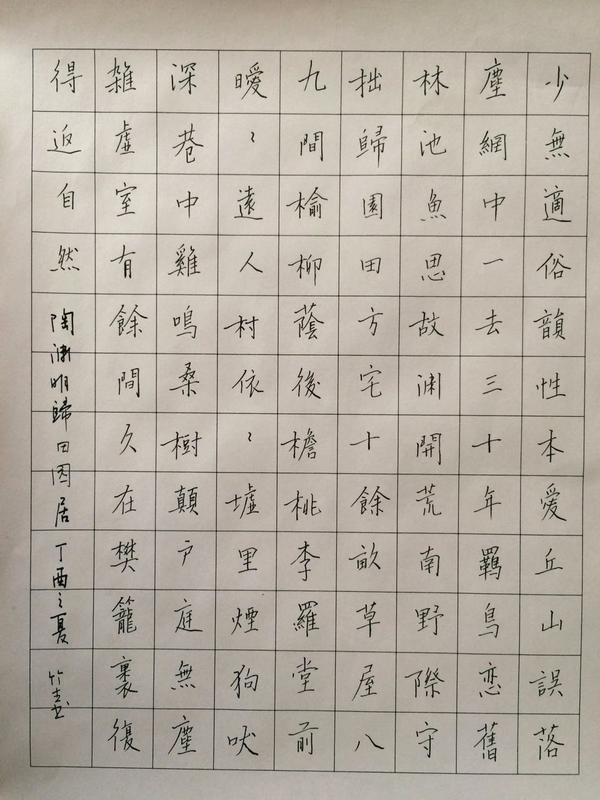 少無適俗韻性本愛丘山誤落
塵網中一去三十年羈鳥恋舊
林池魚思故渊開荒南野際守
拙歸園田方宅十餘畝草屋八
九間榆柳蔭後檐桃李羅堂前
曖〻遠人村依〻墟里煙狗吠
深巷中雞鳴桑樹顛戶庭無塵
雑虛室有餘間久在樊籠裏復
得返自然 陶渊明歸田园居 丁酉之夏 竹